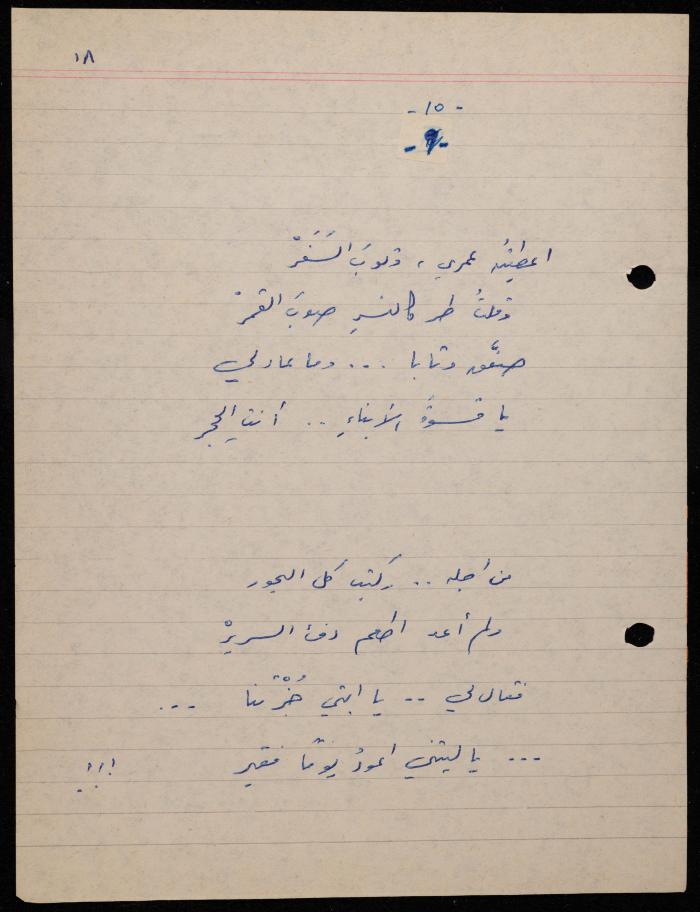 ١٨
- ١٥ -
- ٩ -
اعطيتُه عمري ، وثوبَ السَّفَرْ
وقلتُ طر كالنسرِ صوبَ القمرْ
صفَّق وتابا ... وما عاد لي
يا قسوةَ الأبناءِ .. أنتِ الحجر
من أجله .. ركبتُ كل البحور
ولم أعد اطعم دفءَ السريرْ
فقال لي .. يا ابتي جُزْتنا ...
... يا ليتني اعودُ يومًا فقير !!!